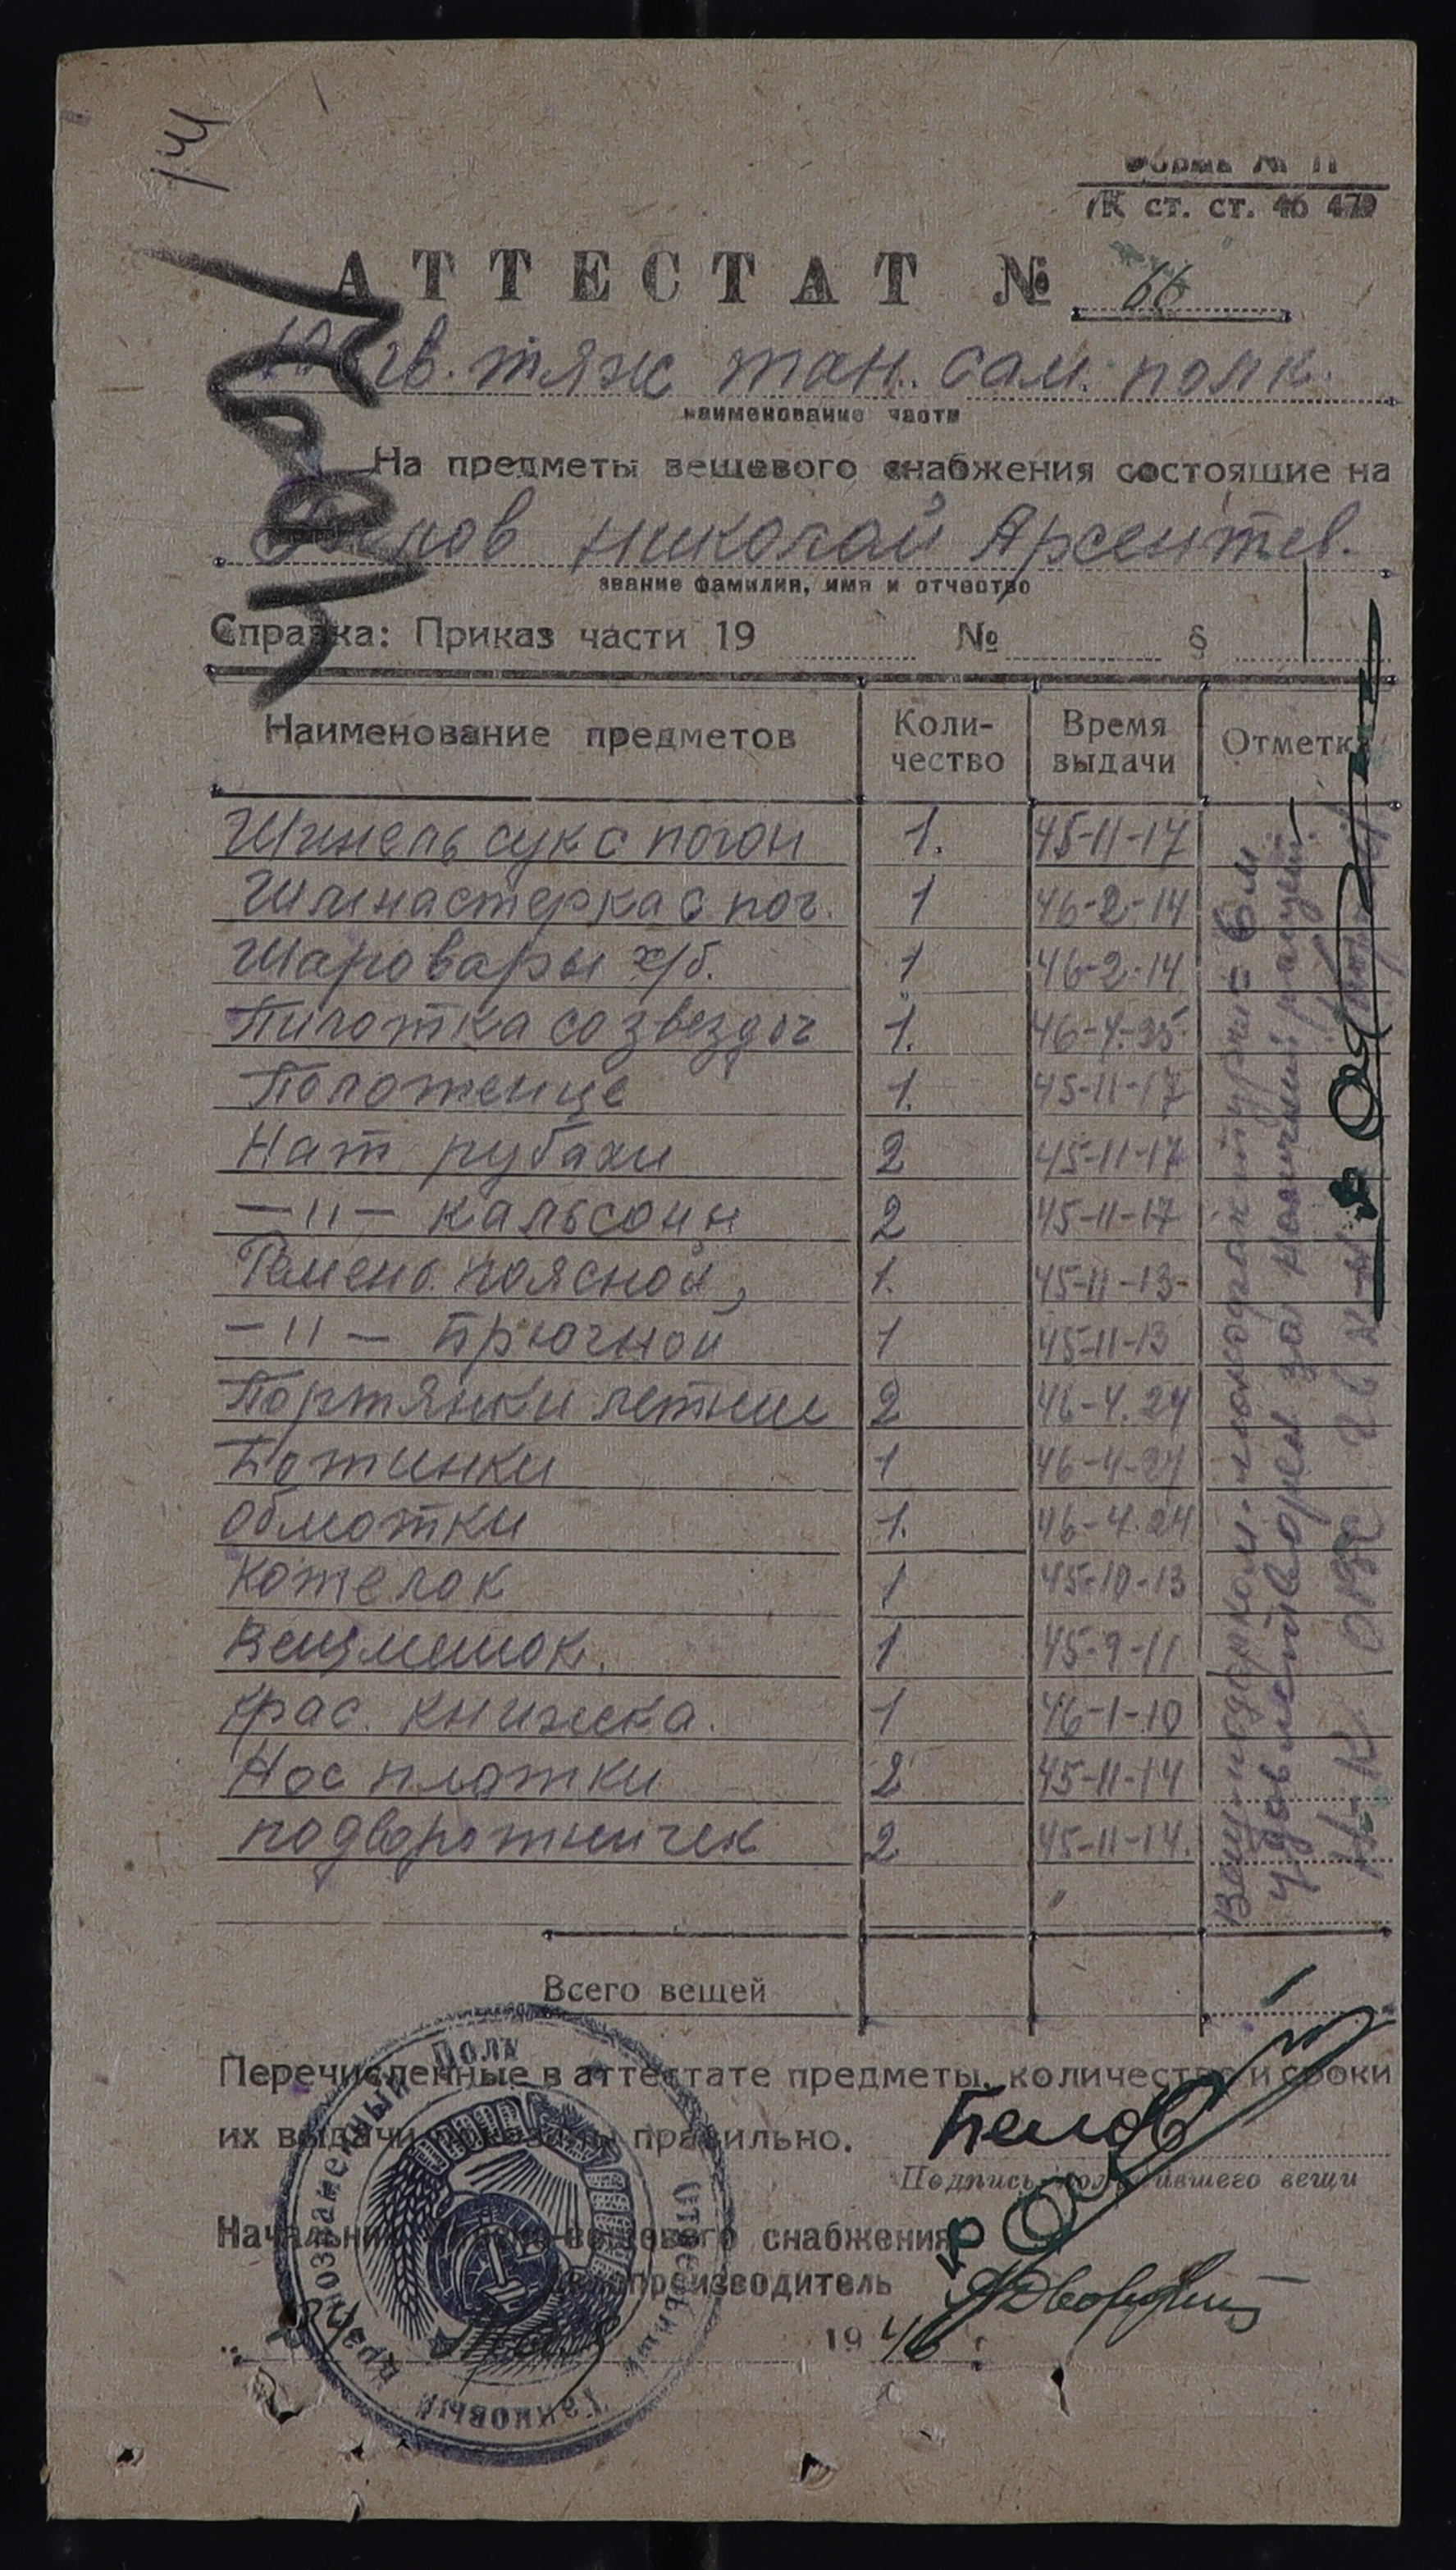 Форма № 11
К ст. ст. 46 47
АТТЕСТАТ № 66
гв. тяж тан. сам. полк.
наименование части
На предметы вещевого снабжения состоящие на
Белов Николай Арсентев.
звание фамилия, имя и отчество
Справка: Приказ части 19 № §
Наименование предметов Коли-чество Время выдачи Отметка
Шинель сук с погон 1. 45-11-17
Гимнастерка с пог. 1 46-2-14
Шаровары х/б. 1 46-2-14
Пилотка со звездоч 1. 46-4-25
Полотенце 1. 45-11-17
Нат рубахи 2 45-11-17
—"— кальсоны 2 45-11-17
Ремень поясной, 1. 45-11-13-
—"— Брючной 1 45-11-13
Портянки летние 2 46-4.24
Ботинки 1 46-4-24
Обмотки 1. 46-4.24
Котелок 1 45-10-13
Вещмешок. 1 45-9-11
крас. книжка. 1 46-1-10
Нос платки 2 45-11-14
подворотничек 2 45-11-14.
удовлетворен за
Всего вещей
Перечисленные в аттестате предметы, количество и сроки
их выдачи показаны правильно.
Белов
Подпись получившего вещи
Начальник обозно-вещевого снабжения
Делопроизводитель
1946 г.
Отдельный Танковый Краснознаменный Полк